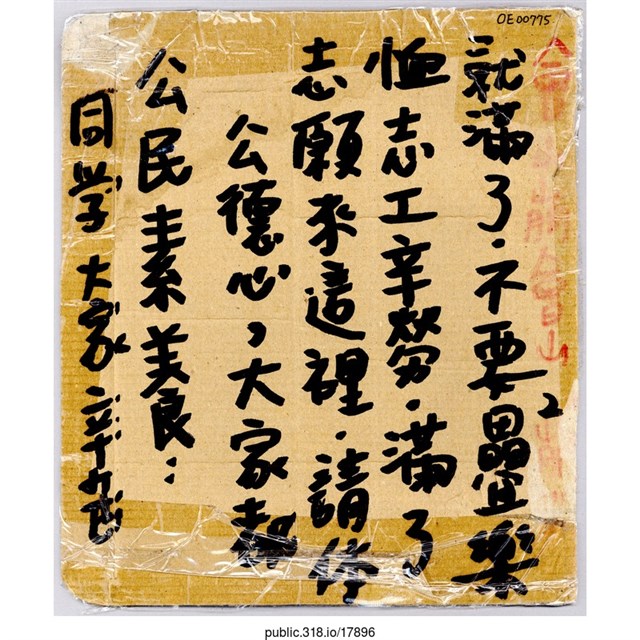 同学大家辛苦
公民素美良:
公德心,大家都
志願來這裡.請体
恤志工辛勞.滿了
就滿了.不要疊2樂
OE00775
public.318.io/17896